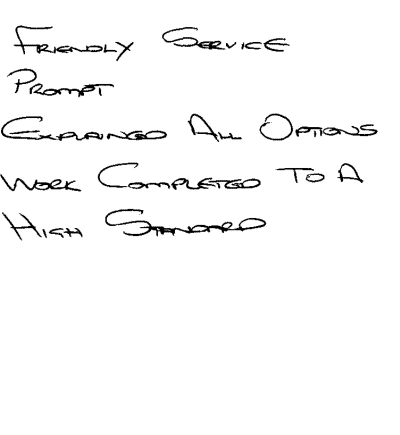 Friendly Service
Prompt
Explained All Options
Work Completed To A
High Standard